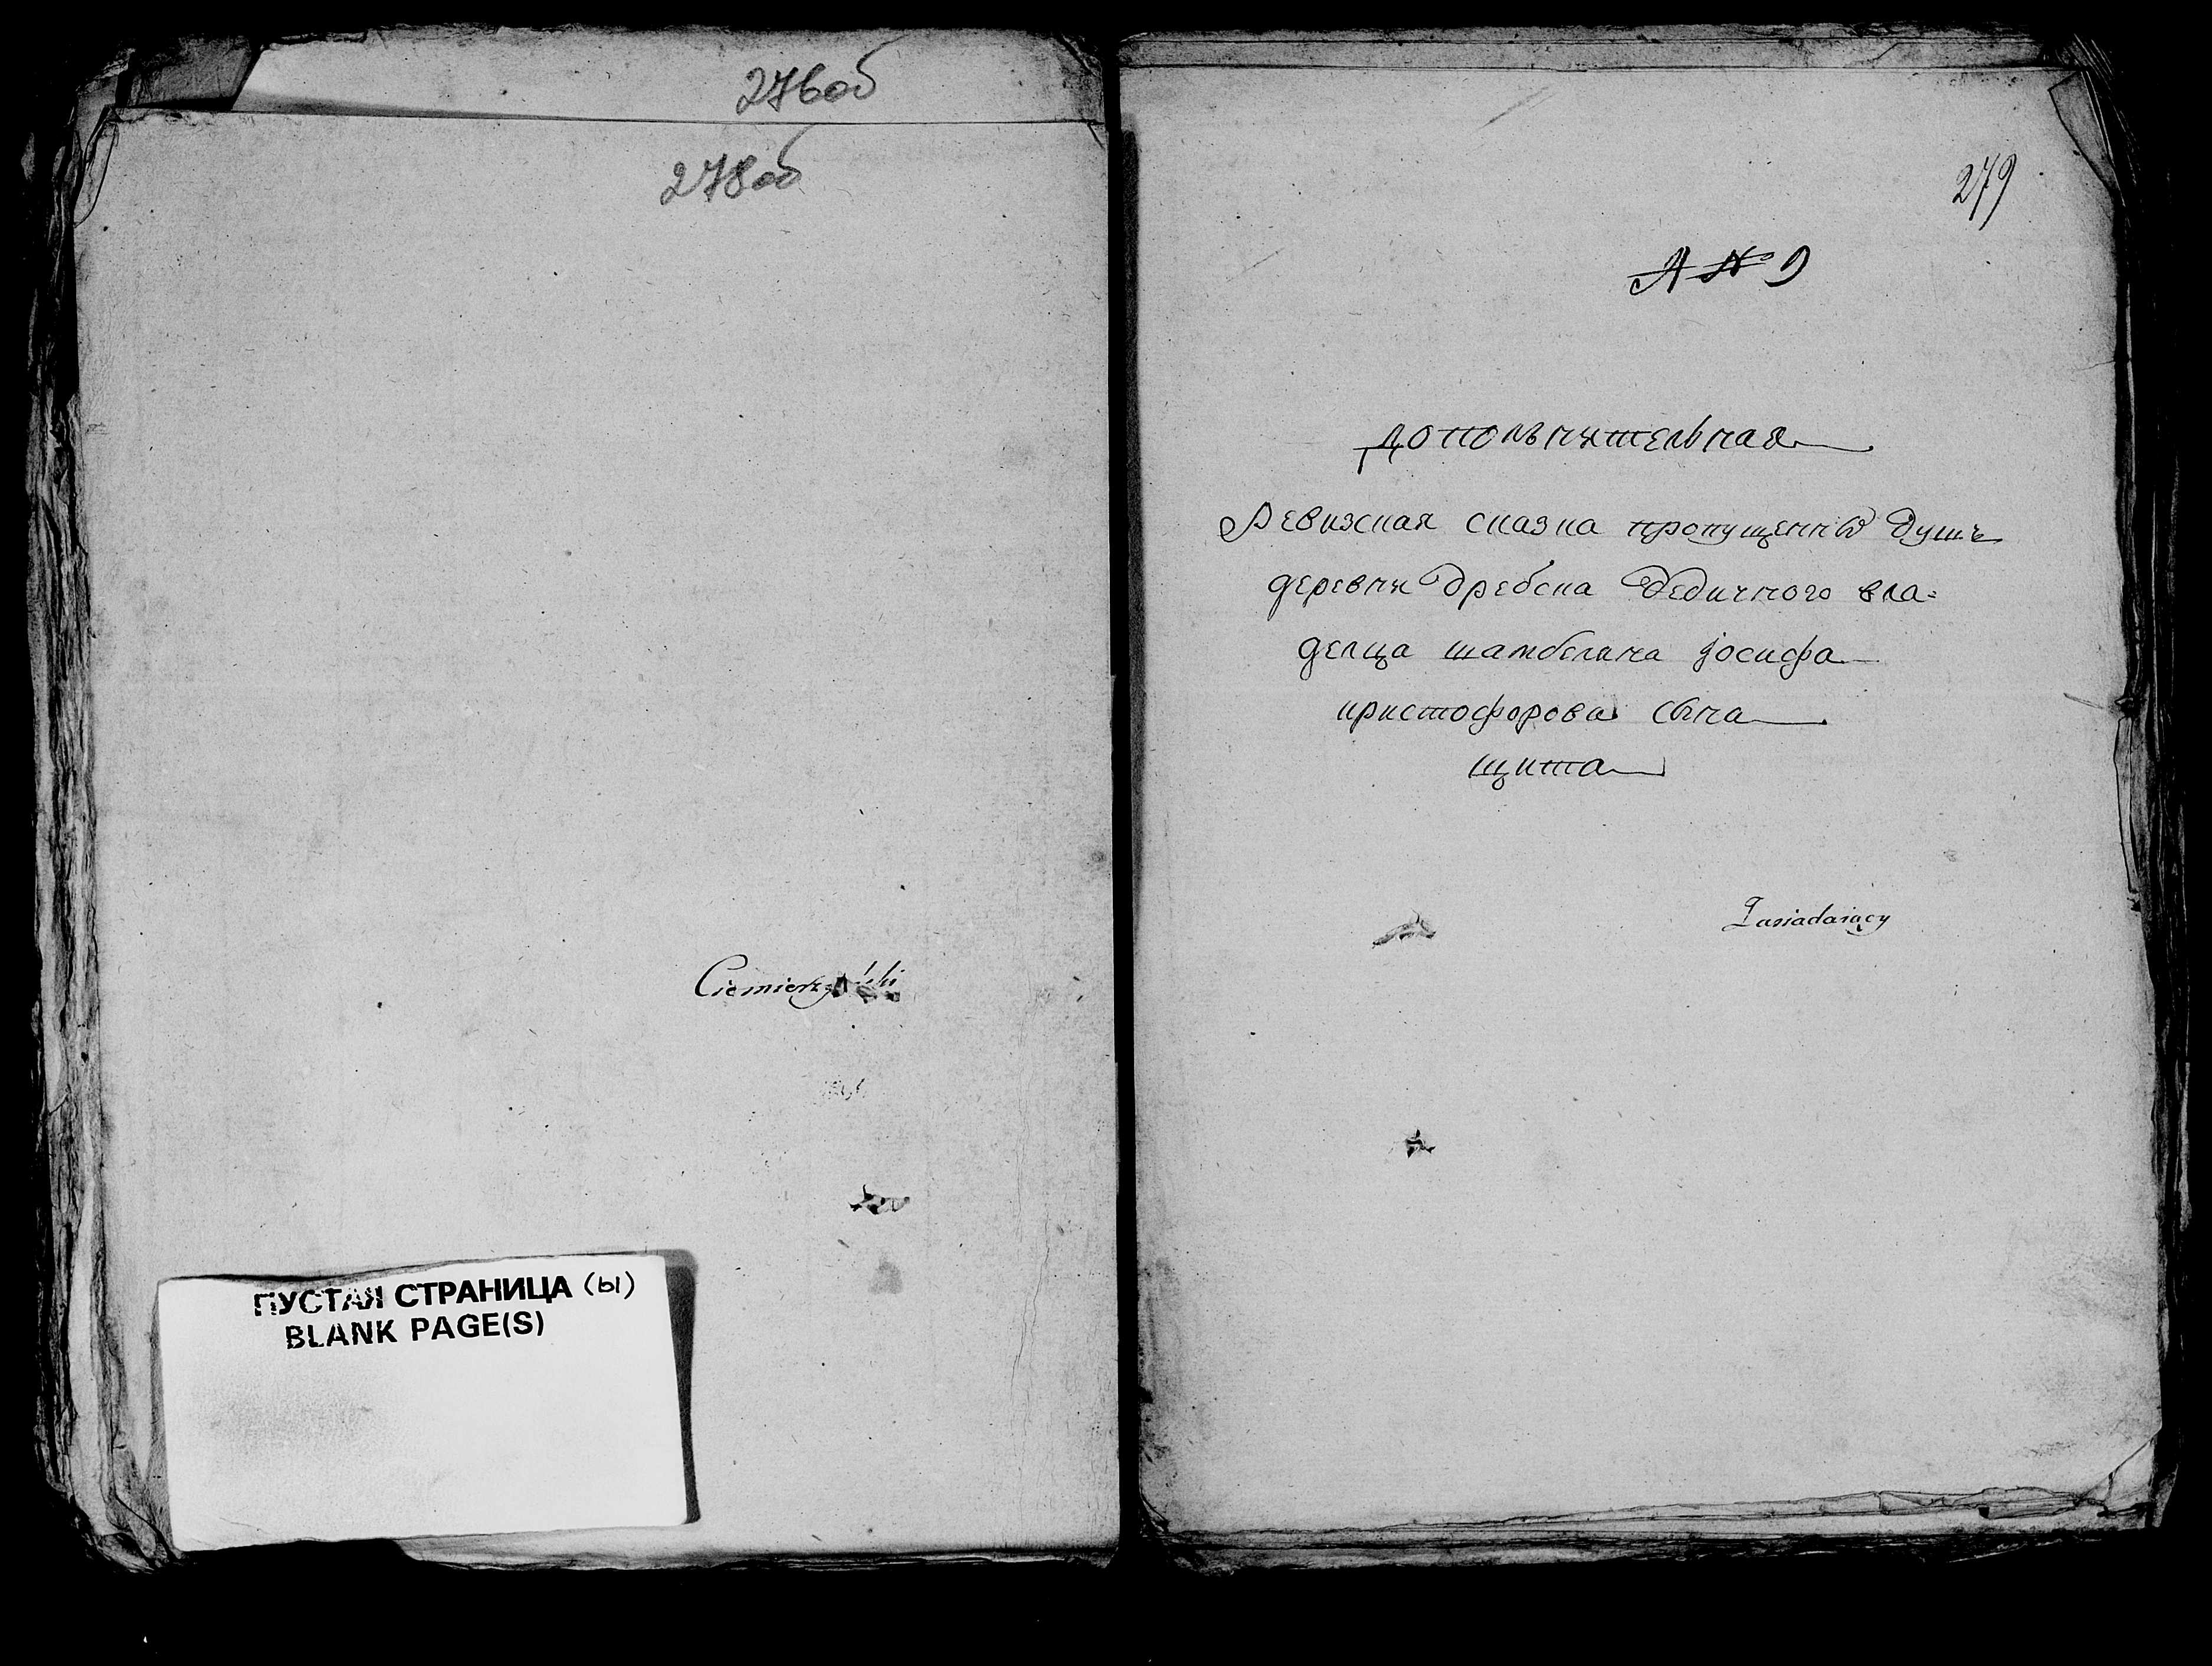 276об
278об
Ciemierzyński
ПУСТАЯ СТРАНИЦА (ы)
BLANK PAGE(S)
279
А № 9
дополънительная
Ревизская сказка пропущенны душъ
деревни Дребска Дедичного вла=
делца шамбеляна Јосифа
криstoфорова сына
щита
Zasiadaiący